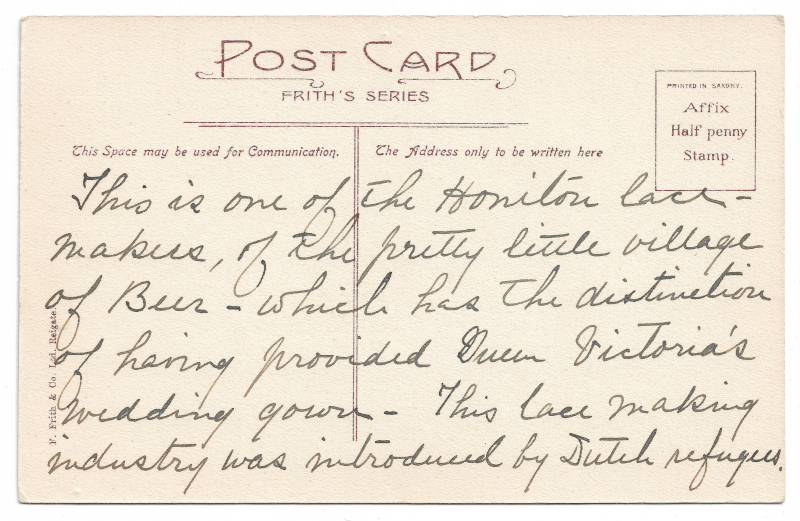 POST CARD
FRITH'S SERIES
PRINTED IN SAXONY.
Affix
Half penny
Stamp.
This Space may be used for Communication.
The Address only to be written here
This is one of the Honiton lace-
makers, of the pretty little village
of Beer - which has the distinction
of having provided Queen Victoria's
wedding gown - This lace making
industry was introduced by Dutch refugees.
F. Frith & Co. Ltd. Reigate.